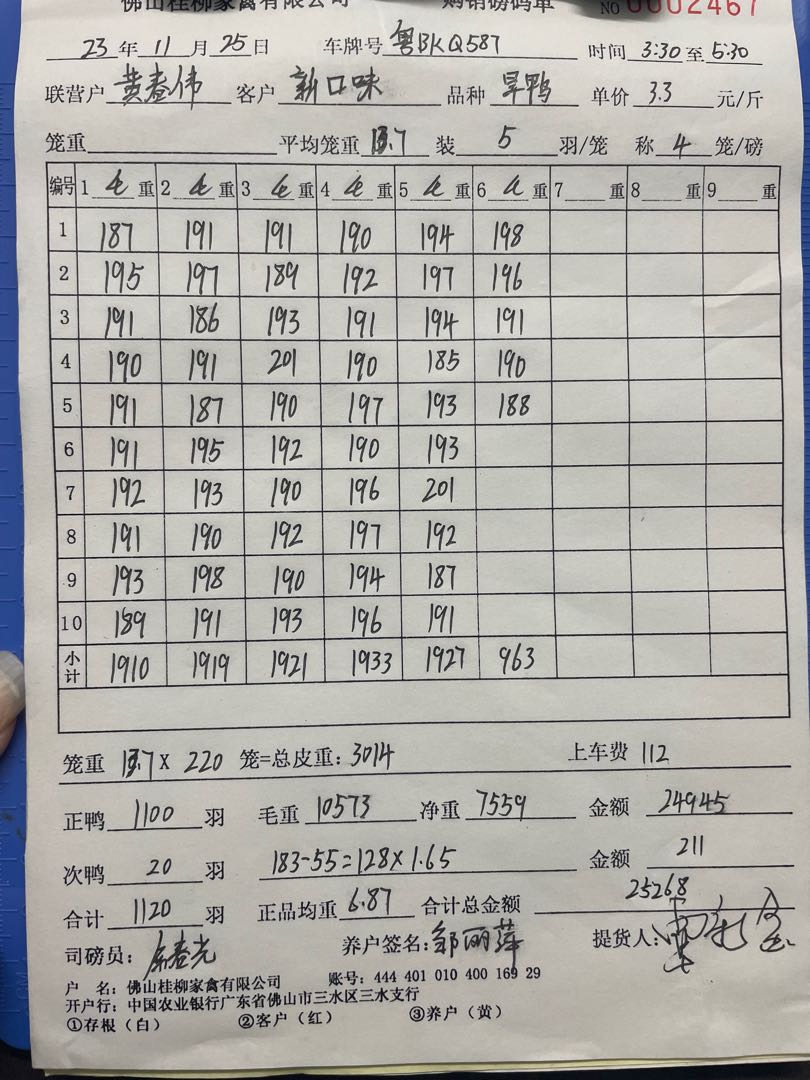 佛山桂柳家禽有限公司 购销磅码单 NO 0002467
23年11月25日 车牌号 粤BKQ587 时间 3:30至5:30
联营户 黄春伟 客户 新口味 品种 旱鸭 单价 3.3 元/斤
笼重 平均笼重 13.7 装 5 羽/笼 称 4 笼/磅
编号 1 重 2 重 3 重 4 重 5 重 6 重 7 重 8 重 9 重
1 187 191 191 190 194 198
2 195 197 189 192 197 196
3 191 186 193 191 194 191
4 190 191 201 190 185 190
5 191 187 190 197 193 188
6 191 195 192 190 193
7 192 193 190 196 201
8 191 190 192 197 192
9 193 198 190 194 187
10 189 191 193 196 191
小计 1910 1919 1921 1933 1927 963
笼重 13.7 X 220 笼=总皮重: 3014 上车费 112
正鸭 1100 羽 毛重 10573 净重 7559 金额 24945
次鸭 20 羽 183-55=128×1.65 金额 211
合计 1120 羽 正品均重 6.87 合计总金额 25268
司磅员: 养户签名: 邹丽萍 提货人:
户 名: 佛山桂柳家禽有限公司 账号: 444 401 010 400 169 29
开户行: 中国农业银行广东省佛山市三水区三水支行
①存根(白) ②客户(红) ③养户(黄)